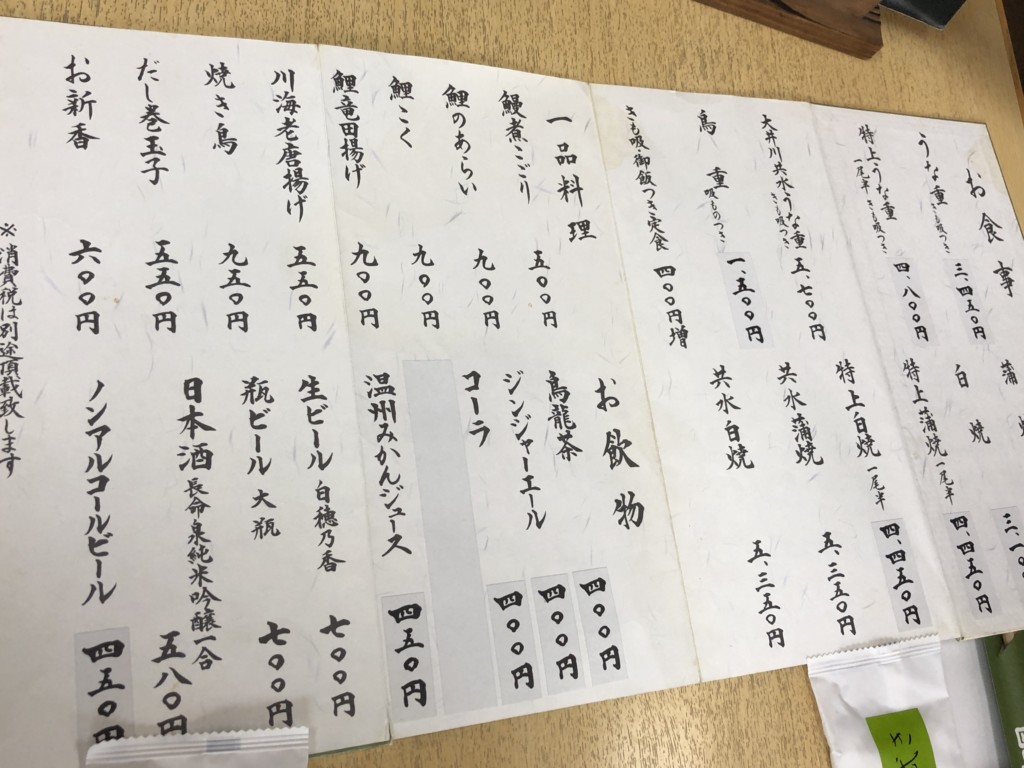 お食事
うな重 きも吸つき 三、四五〇円
特上うな重 一尾半 きも吸つき 四、八〇〇円
大井川共水うな重 きも吸つき 五、七〇〇円
鳥重 吸ものつき 一、五〇〇円
きも吸御飯つき定食 四〇〇円増
蒲
白焼 四、四五〇円
特上蒲焼 一尾半 四、四五〇円
特上白焼 一尾半
共水蒲焼 五、三五〇円
共水白焼 五、三五〇円
一品料理
鰻煮こごり 五〇〇円
鯉のあらい 九〇〇円
鯉こく 九〇〇円
鯉竜田揚げ 九〇〇円
川海老唐揚げ 五五〇円
焼き鳥 九五〇円
だし巻玉子 五五〇円
お新香 六〇〇円
お飲物
烏龍茶 四〇〇円
ジンジャーエール 四〇〇円
コーラ 四〇〇円
温州みかんジュース 四五〇円
生ビール 白穂乃香 七〇〇円
瓶ビール 大瓶 七〇〇円
日本酒 長命泉純米吟醸一合 五八〇円
ノンアルコールビール 四五〇円
※消費税は別途頂載致します